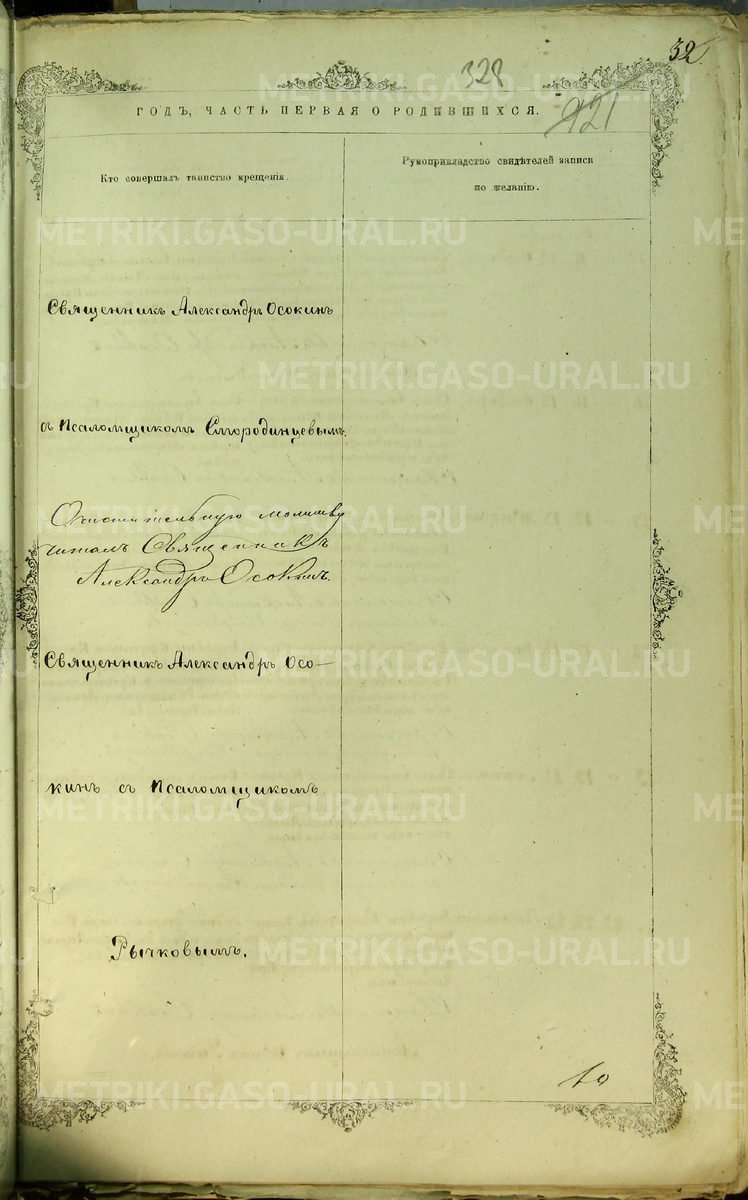 32.
328
421
ГОДЪ, ЧАСТЬ ПЕРВАЯ О РОДИВШИХСЯ.
Кто совершалъ таинство крещенія.
Рукоприкладство свидѣтелей записи
по желанію.
Священникъ Александръ Осокинъ
съ Псаломщикомъ Смородинцевымъ.
Очистительную молитву
читалъ Священникъ
Александръ Осокинъ.
Священникъ Александръ Осо-
кинъ съ Псаломщикомъ
Рычковымъ.
10
METRIKI.GASO-URAL.RU